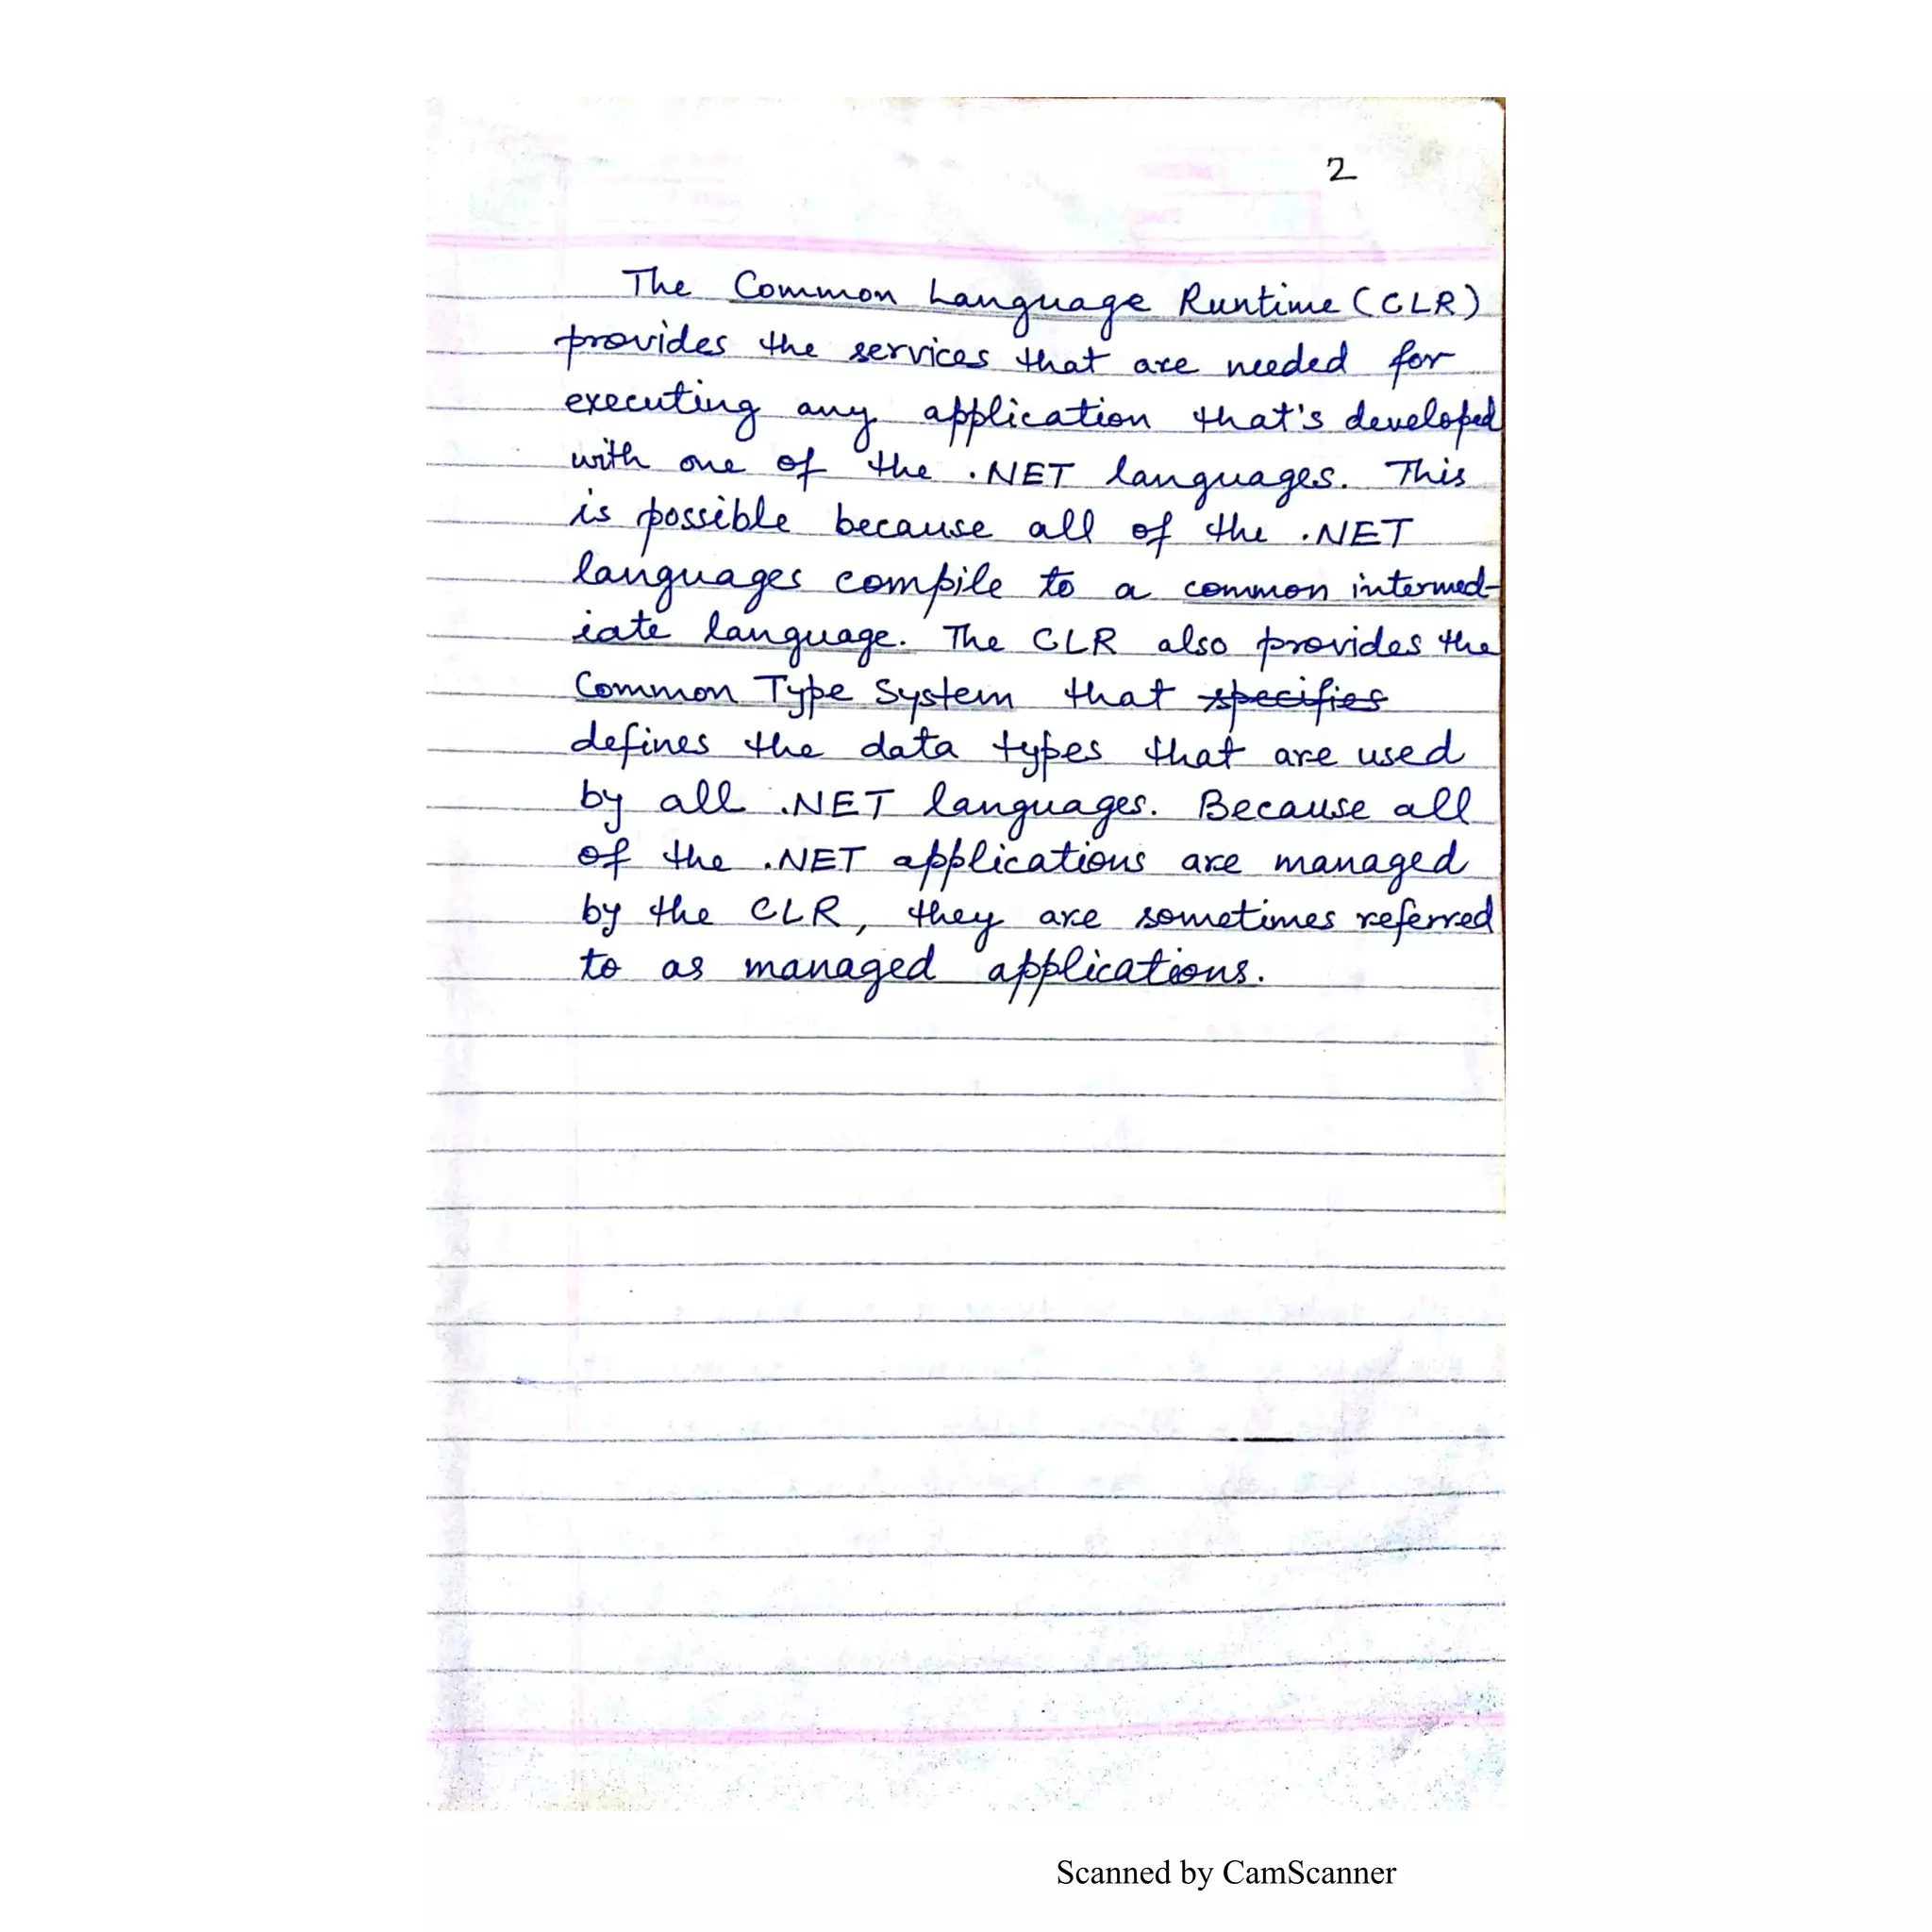 2
The Common Language Runtime (CLR)
provides the services that are needed for
executing any application that's developed
with one of the .NET languages. This
is possible because all of the .NET
languages compile to a common intermed-
iate language. The CLR also provides the
Common Type System that specifies
defines the data types that are used
by all .NET languages. Because all
of the .NET applications are managed
by the CLR, they are sometimes referred
to as managed applications.
Scanned by CamScanner